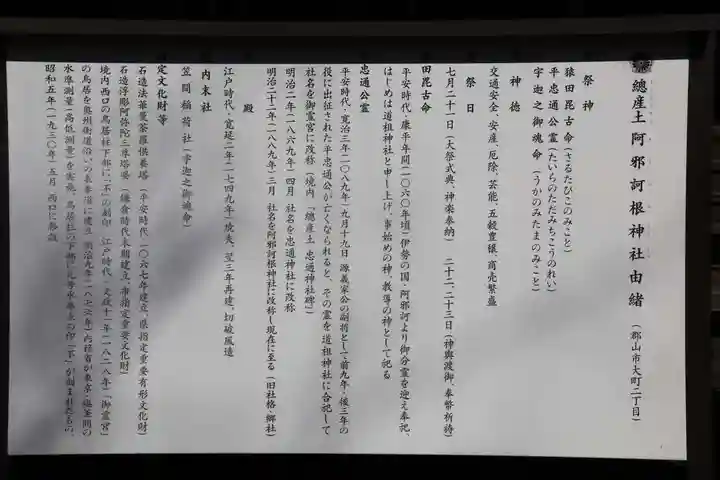 總産土 阿邪訶根神社 由緒 (郡山市大町二丁目)
祭神
猿田毘古命(さるたびこのみこと)
平忠通公霊(たいらのただみちこうのれい)
宇迦之御魂命(うかのみたまのみこと)
神徳
交通安全、安産、厄除、芸能、五穀豊穣、商売繁盛
祭日
七月二十一日(大祭式典、神楽奉納) 二十二、二十三日(神輿渡御、奉幣祈祷)
田毘古命
平安時代・康平年間(一〇六〇年頃)伊勢の国・阿邪訶より御分霊を迎え奉祀、
はじめは道祖神社と申し上げ、事始めの神・教導の神として祀る
忠通公霊
平安時代・寛治三年(一〇八九年)九月十九日 源義家公の副将として前九年・後三年の
役に出征された平忠通公が亡くなられると、その霊を道祖神社に合祀して
社名を御霊宮に改称(境内「總産土 忠通神社碑」)
明治二年(一八六九年)四月 社名を忠通神社に改称
明治二十二年(一八八九年)三月 社名を阿邪訶根神社に改称し現在に至る(旧社格・郷社)
殿
江戸時代・寛延二年(一七四九年)焼失、翌三年再建、切破風造
内末社
笠間稲荷社(宇迦之御魂命)
定文化財等
石造法華曼荼羅供養塔(平安時代一〇六七年建立、県指定重要有形文化財)
石造浮彫阿弥陀三尊塔婆(鎌倉時代末期建立、市指定重要文化財)
境内西口の鳥居柱下部に「不」の刻印 江戸時代・文政十一年(一八二八年)「御霊宮」
の鳥居を奥州街道沿いの表参道に建立 明治九年(一八七六年)内務省が東京・塩釜間の
水準測量(高低測量)を実施、鳥居柱の下部に几号水準点の印(不)が刻まれたもの、
昭和五年(一九三〇年)五月 西口に移設